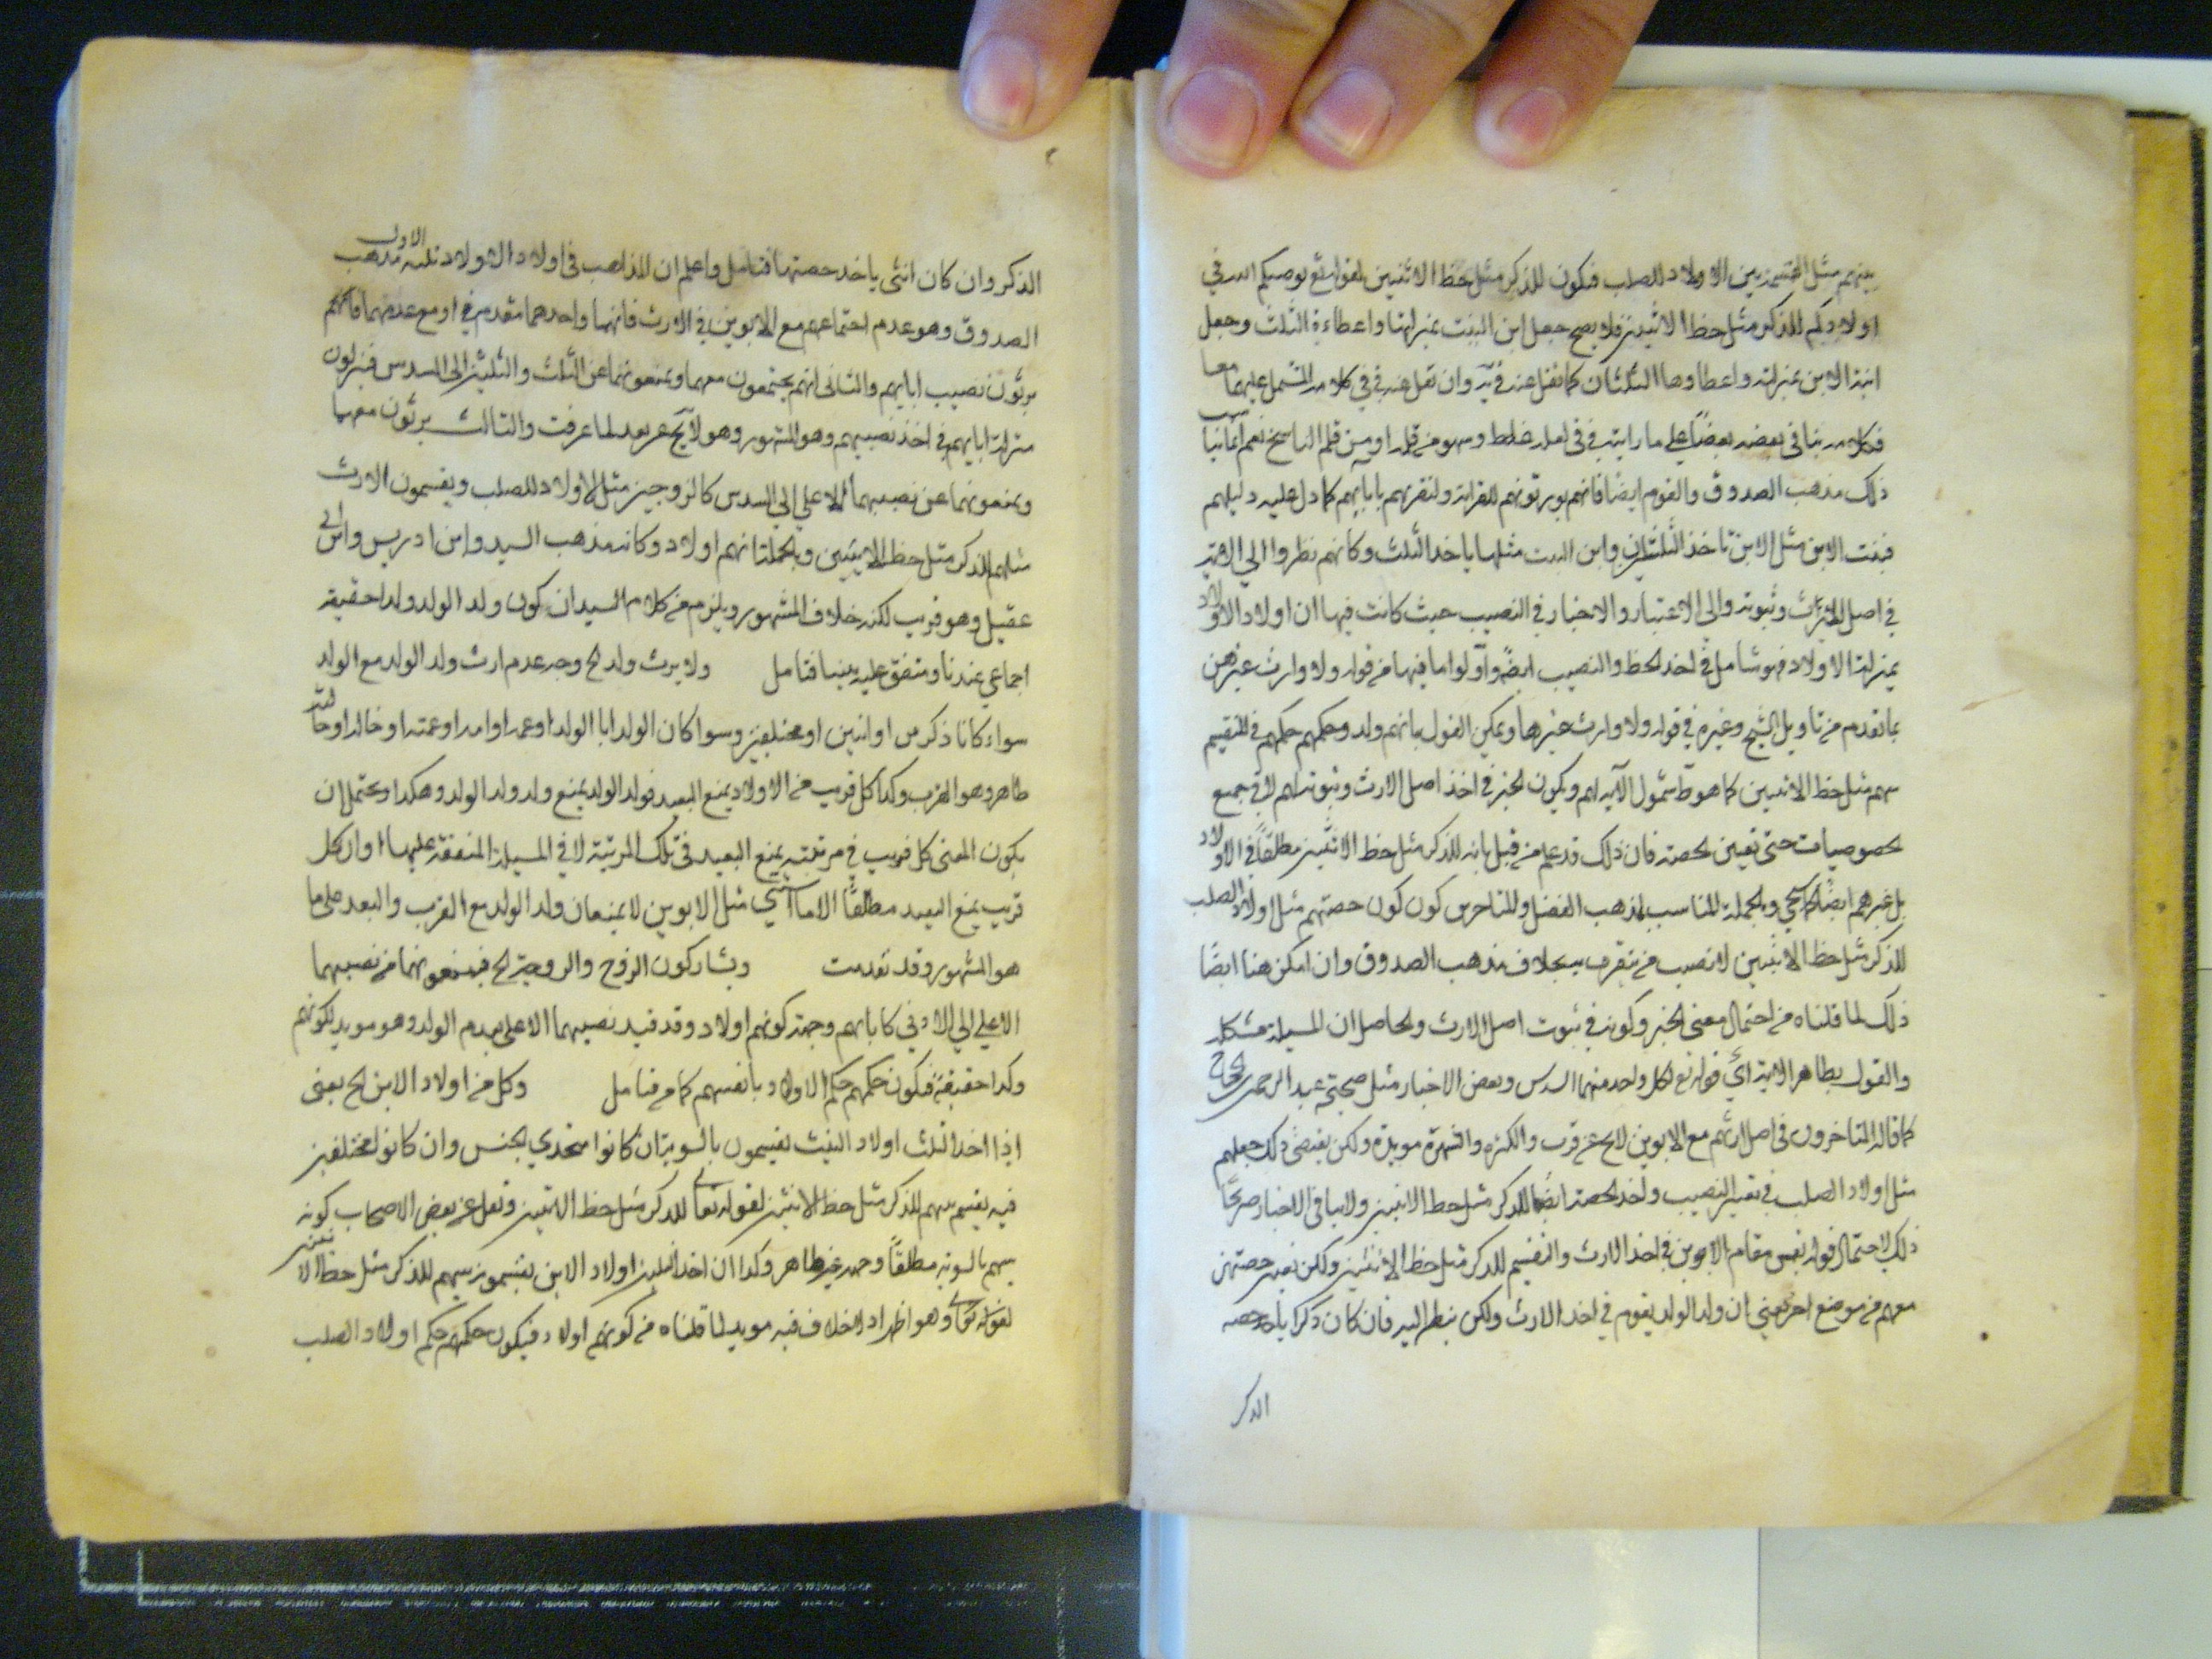 بينهم مثل القسمة بين الاولاد للصلب فيكون للذكر مثل حظ الانثيين لقوله تع يوصيكم الله في
اولادكم للذكر مثل حظ الانثيين فلا يصح جعل ابن البنت بمنزلتها واعطاءه الثلث وجعل
ابنة الابن بمنزلته واعطاوها الثلثان كما نقل عنه في يه وان نقل عنه في في كلامه المشتمل عليهما معا
فكلامه ينافي بعضه بعضا على ما رايته في في لعله غلط وسهو من قلمه او من قلم الناسخ نعم انما يناسب
ذلك مذهب الصدوق والقوم ايضا فانهم يورثونهم للقرابة ولتقربهم باباهم كما دل عليه دليلهم
فبنت الابن مثل الابن تاخذ الثلثان وابن البنت مثلها ياخذ الثلث وكانهم نظروا الى الاية
في اصل الميراث وثبوته والى الاعتبار والاخبار في النصيب حيث كانت فيها ان اولاد الاولاد
بمنزلة الاولاد فهو شامل في اخذ الحظ والنصيب ايضا واولوا ما فيها من قوله ولا وارث غيرهن
بما تقدم من تاويل الشيخ وغيره في قوله ولا وارث غيرها ويمكن القول بانهم ولد وحكمهم حكمهم في التقسيم
سهم مثل حظ الانثيين كما هو ظ شمول الآية لهم ويكون الخبر في اخذ اصل الارث وثبوته لهم لا في جميع
الخصوصيات حتى تعيين الحصة فان ذلك قد علم من قبل بانه للذكر مثل حظ الانثيين مطلقا في الاولاد
بل غيرهم ايضا كما سيجي وبالجملة المناسب لمذهب الفضل والمتاخرين كون كون حصتهم مثل اولاد الصلب
للذكر مثل حظ الانثيين لا نصيب من يتقرب به بخلاف مذهب الصدوق وان امكن هنا ايضا
ذلك لما قلناه من احتمال معنى الخبر وكونه في ثبوت اصل الارث والحاصل ان المسيلة مشكلة
والقول بظاهر الاية اي قوله تع لكل واحد منهما السدس وبعض الاخبار مثل صحيحة عبد الرحمن بن الحجاج
كما قاله المتاخرون في اصل ارثهم مع الابوين لا يخ عن قرب والكثرة والشهرة مويدة ولكن يقتضى ذلك جعلهم
مثل اولاد الصلب في تعيين النصيب واخذ الحصة ايضا للذكر مثل حظ الانثيين ولا ينافي الاخبار صريحا
ذلك لاحتمال قوله تقمن مقام الابوين في اخذ الارث والتقسيم للذكر مثل حظ الانثيين ولكن تعين حصتهن
معهم من موضع اخر يعني ان ولد الولد يقوم في اخذ الارث ولكن ينظر اليه فان كان ذكرا ياخذ حصة
الذكر
الذكر وان كان انثى ياخذ حصتها فتامل واعلم ان المذاهب في اولاد الاولاد ثلثه الاول مذهب
الصدوق وهو عدم اجتماعهم مع الابوين في الارث فانهما واحدهما مقدم في او مع عدمهما فانهم
يرثون نصيب ابايهم والثاني انهم يجتمعون معهما ويمنعونهما عن الثلث والثلثين الى السدس فينزلون
منزلة ابايهم في اخذ نصيبهم وهو المشهور وهو لا يخ عن بعد لما عرفت والثالث يرثون معهما
ويمنعونهما عن نصيبهما الاعلى الى السدس كالزوجين مثل الاولاد للصلب ويقسمون الارث
مثلهم للذكر مثل حظ الانثيين وبالجملة انهم اولاد وكانه مذهب السيد وابن ادريس وابن ابي
عقيل وهو قريب لكنه خلاف المشهور ويلزم من كلام السيد ان كون ولد الولد ولدا حقيقة
اجماعي عندنا ومتفق عليه بيننا فتامل ولا يرث ولد الخ وجه عدم ارث ولد الولد مع الولد
سواء كانا ذكرين او انثيين او مختلفين وسوا كان الولد ابا الولد او عمه او امه او عمته او خاله او خالته
ظاهر وهو القرب وكذا كل قريب من الاولاد يمنع البعيد فولد الولد يمنع ولد ولد الولد وهكذا ويحتمل ان
يكون المعنى كل قريب في مرتبته يمنع البعيد في تلك المرتبة لا في المسيلة المتفقة عليها او ان كل
قريب يمنع البعيد مطلقا الا ما استثني مثل الابوين لا يمنعان ولد الولد مع القرب والبعد على ما
هو المشهور وقد تقدمت ويشاركون الزوج والزوجة الخ فيمنعونهما من نصيبهما
الاعلى الى الادنى كابايهم وجهة كونهم اولاد وقد قيد نصيبهما الاعلى بعدم الولد وهو مويد لكونهم
ولدا حقيقة فيكون حكمهم حكم الاولاد بانفسهم كما مر فتامل وكل من اولاد الابن الخ يعنى
اذا اخذ الثلث اولاد البنت يقسمون بالسوية ان كانوا متحدي الجنس وان كانوا مختلفين
فيه يقسم بينهم للذكر مثل حظ الانثيين لقوله تعالى للذكر مثل حظ الانثيين ونقل عن بعض الاصحاب كونه
بينهم بالسوية مطلقا وجهه غير ظاهر وكذا ان اخذ الثلثين اولاد الابن يقسمونه بينهم للذكر مثل حظ الانثيين
لقوله تعالى وهو اظهر اذ لا خلاف فيه مويد لما قلناه من كونهم اولاد فيكون حكمهم حكم اولاد الصلب